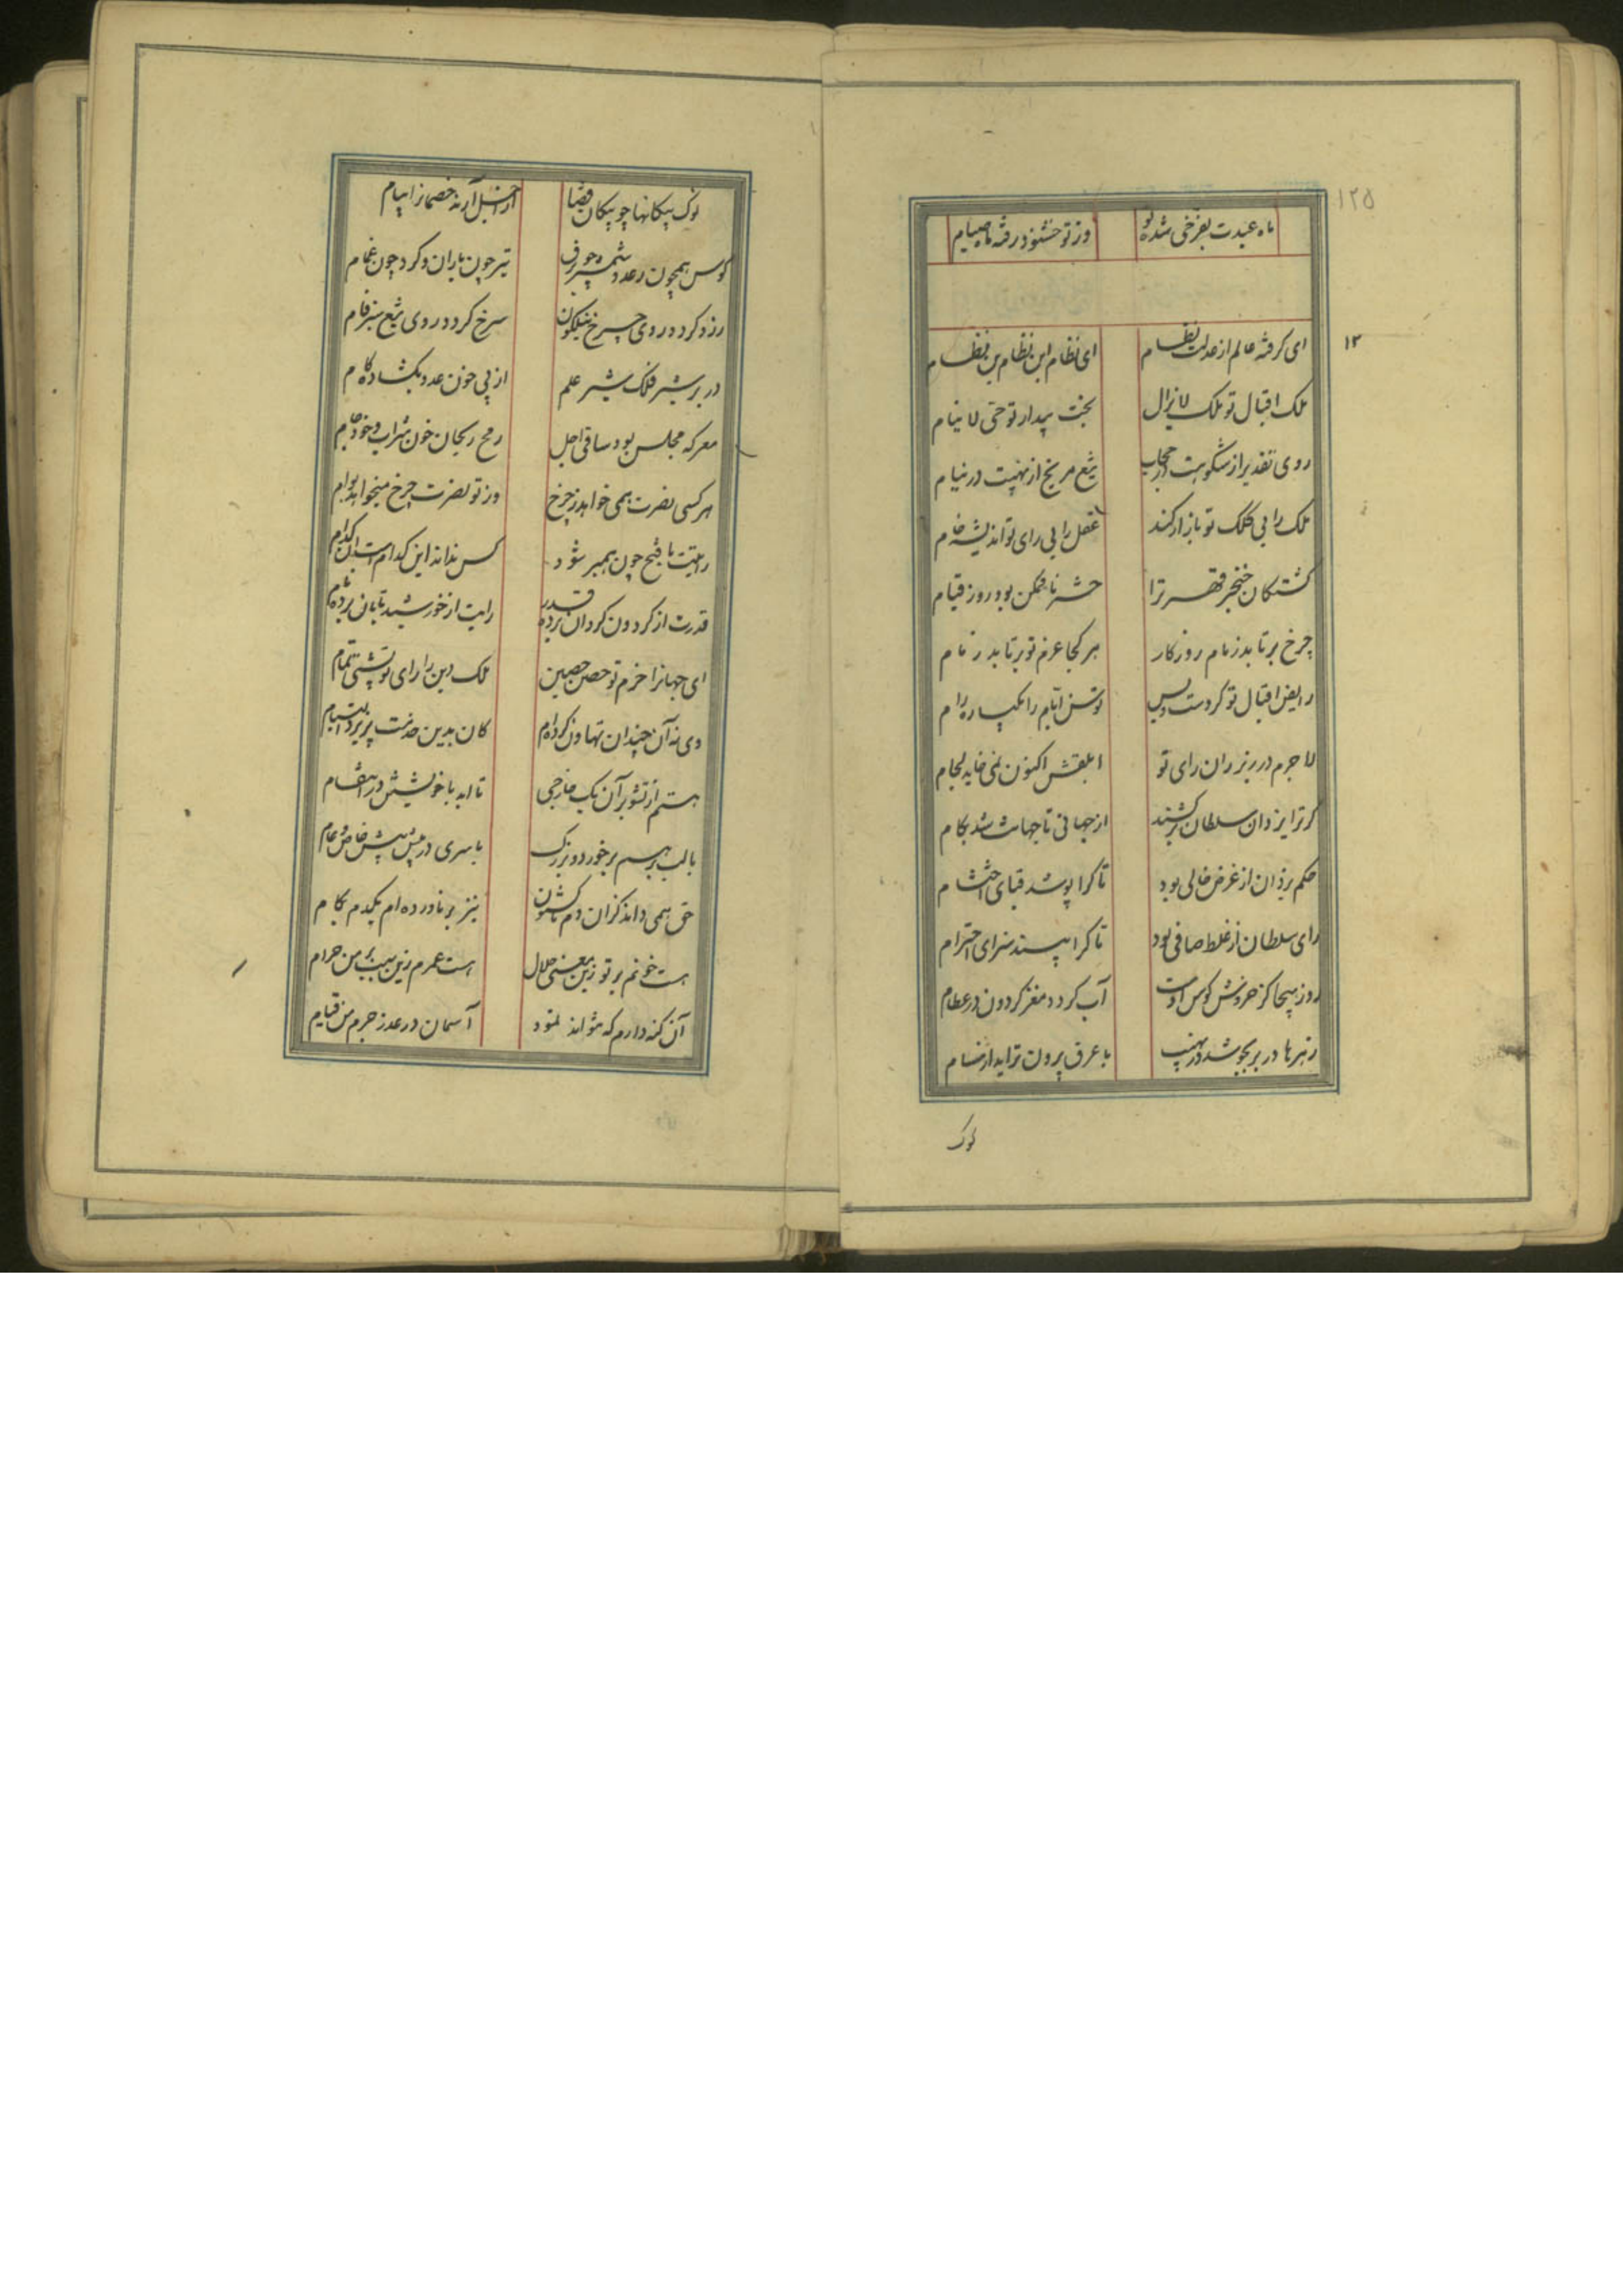 ۱۲۵
ماه عیدت بفرخی شده نو وز تو خشنود رفته ماه صیام
۱۲
ای کرفته عالم از عدلت نظام ای نظام ابن نظام بن نظام
ملک اقبال تو ملک لا یزال بخت بیدار تو حی لا ینام
روی تقدیر از شکوهت در حجاب تیغ مریخ از نهیبت در نیام
ملک را بی کلک تو بازار کند عقل را بی رای تو اندیشه خام
کشتکان خنجر قهر ترا حشر ناممکن بود روز قیام
چرخ برتابد زمام روزکار هر کجا عزم تو برتابد زمام
رایض اقبال تو کردست و بس توسن ایام را یکباره رام
لاجرم در زیر ران رای تو ابلقش اکنون نمی خاید لجام
کر ترا یزدان و سلطان برکشند از جهانی تا جهانت شد بکام
حکم یزدان از غرض خالی بود تا کرا پوشد قبای احتشام
رای سلطان از غلط صافی بود تا کرا بیند سزای احترام
روز هیجا کز خروش کوس اوست آب کردد مغز کردون در عظام
زهرها در بر بجوشد در نهیب با عرق بیرون تراید از مسام
نوک
نوک پیکانها چو پیکان قضا از اجل آرند خصمانرا پیام
کوس همچون رعد و شمشیر چو برق تیر چون باران و کرد چون غمام
زرد کردد روی چرخ نیلکون سرخ کردد روی تیغ سبز فام
در بر شیر فلک شیر علم از پی خون عدو بکشاده کام
معرکه مجلس بود ساقی اجل رمح ریحان خون شراب و خود جام
هر کسی نصرت همی خواهد ز چرخ وز تو نصرت چرخ میخواهد بوام
رایتت با فتح چون همبر شود کس نداند این کدام است آن کدام
قدرت از کردون کردان برده قدر رایت از خورشید تابان برده نام
ای جهانرا حزم تو حصن حصین ملک دین را رای تو پشتی تمام
وی نه آن چندان تهاون کرده‌ام کان بدین خدمت پذیرد التیام
هستم از تشویر آن یک خارجی تا ابد با خویشتن در انتقام
با سری در پیش پیش خاص و عام
حق همی داند کزان دم تا کنون نیز برناورده ام یکدم بکام
هست خونم بر تو زین معنی حلال هست عمرم زین سبب بر من حرام
آن کنه دارم که نتواند نمود آسمان در عذر جرم من قیام